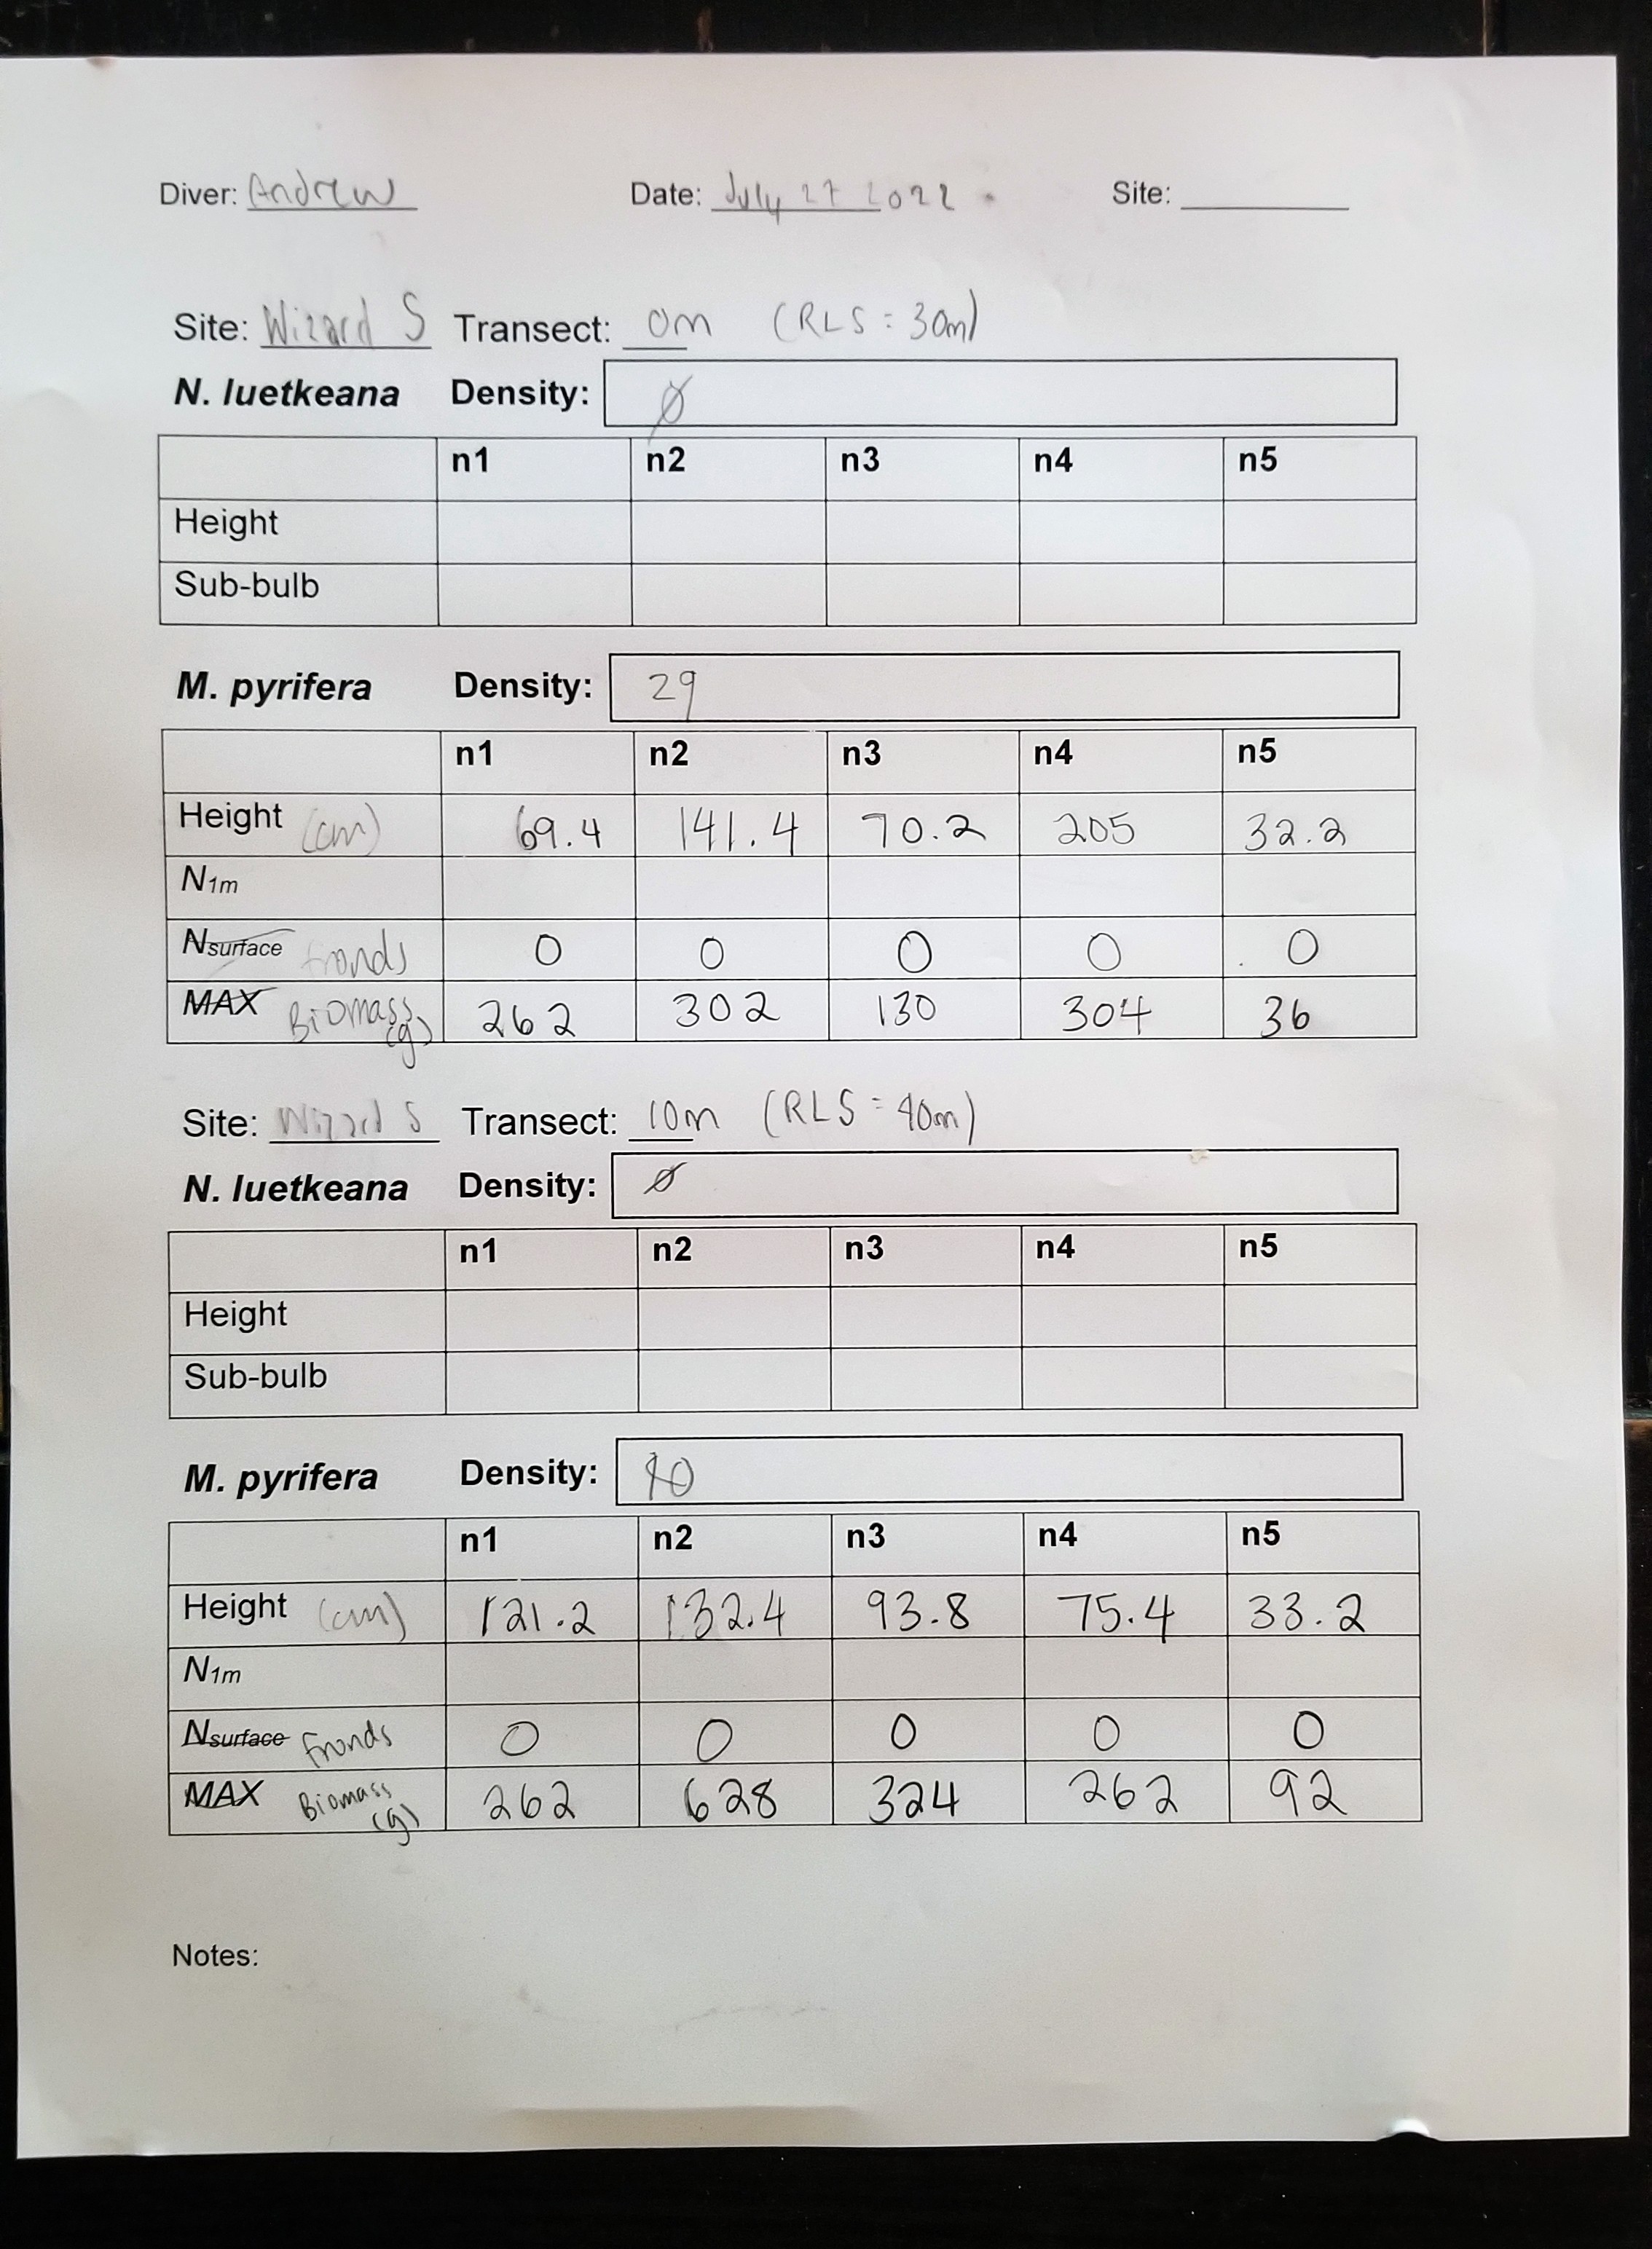 Diver: Andrew Date: July 27 2022 Site:
Site: Wizard S Transect: 0m (RLS = 30m)
N. luetkeana Density: Ø
n1 n2 n3 n4 n5
Height
Sub-bulb
M. pyrifera Density: 29
n1 n2 n3 n4 n5
Height (cm) 69.4 141.4 70.2 205 32.2
N1m
Nsurface fronds 0 0 0 0 0
MAX Biomass (g) 262 302 130 304 36
Site: Wizard S Transect: 10m (RLS = 40m)
N. luetkeana Density: Ø
n1 n2 n3 n4 n5
Height
Sub-bulb
M. pyrifera Density: 40
n1 n2 n3 n4 n5
Height (cm) 121.2 132.4 93.8 75.4 33.2
N1m
Nsurface Fronds 0 0 0 0 0
MAX Biomass (g) 262 628 324 262 92
Notes: